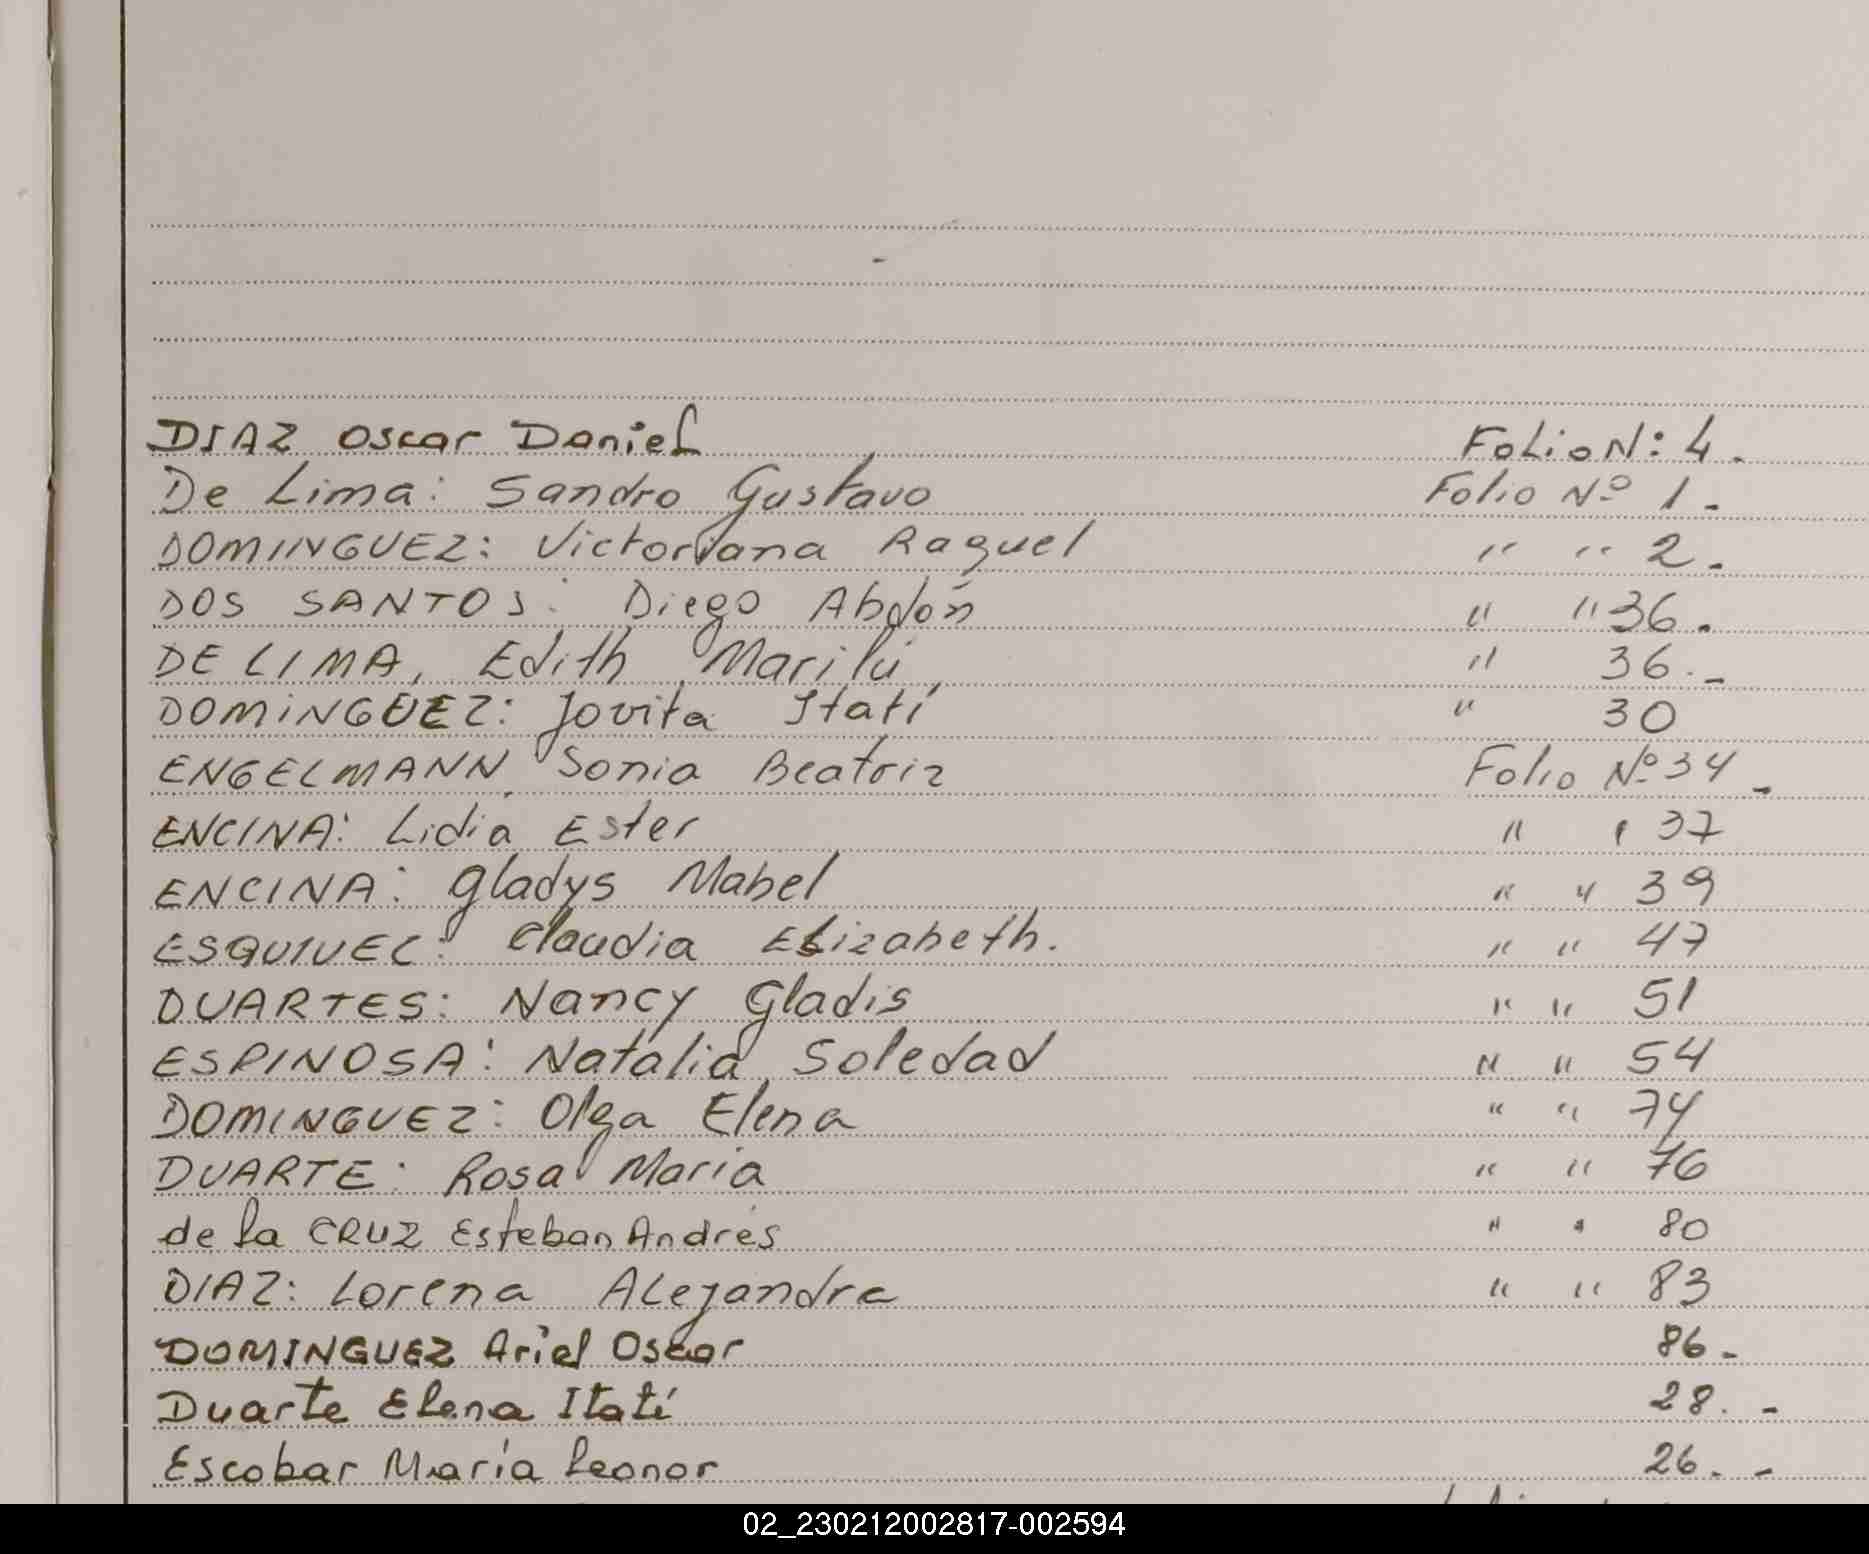 DIAZ Oscar Daniel Folio N: 4.
De Lima: Sandro Gustavo Folio Nº 1.-
DOMINGUEZ: Victoriana Raquel " " 2.
DOS SANTOS: Diego Abdón " " 36.
DE LIMA, Edith Marilú, " 36.-
DOMINGUEZ: Jovita Itatí " 30
ENGELMANN, Sonia Beatriz Folio Nº 34 -
ENCINA: Lidia Ester " ' 37
ENCINA: Gladys Mabel " " 39
ESQUIVEL: Claudia Elizabeth. " " 47
DUARTES: Nancy Gladis " " 51
ESPINOSA: Natalia Soledad " " 54
DOMINGUEZ: Olga Elena " " 74
DUARTE: Rosa María " " 76
de la CRUZ Esteban Andrés " " 80
DIAZ: Lorena Alejandra " " 83
DOMINGUEZ Ariel Oscar 86.-
Duarte Elena Itatí 28.-
Escobar María Leonor 26.-
02_230212002817-002594